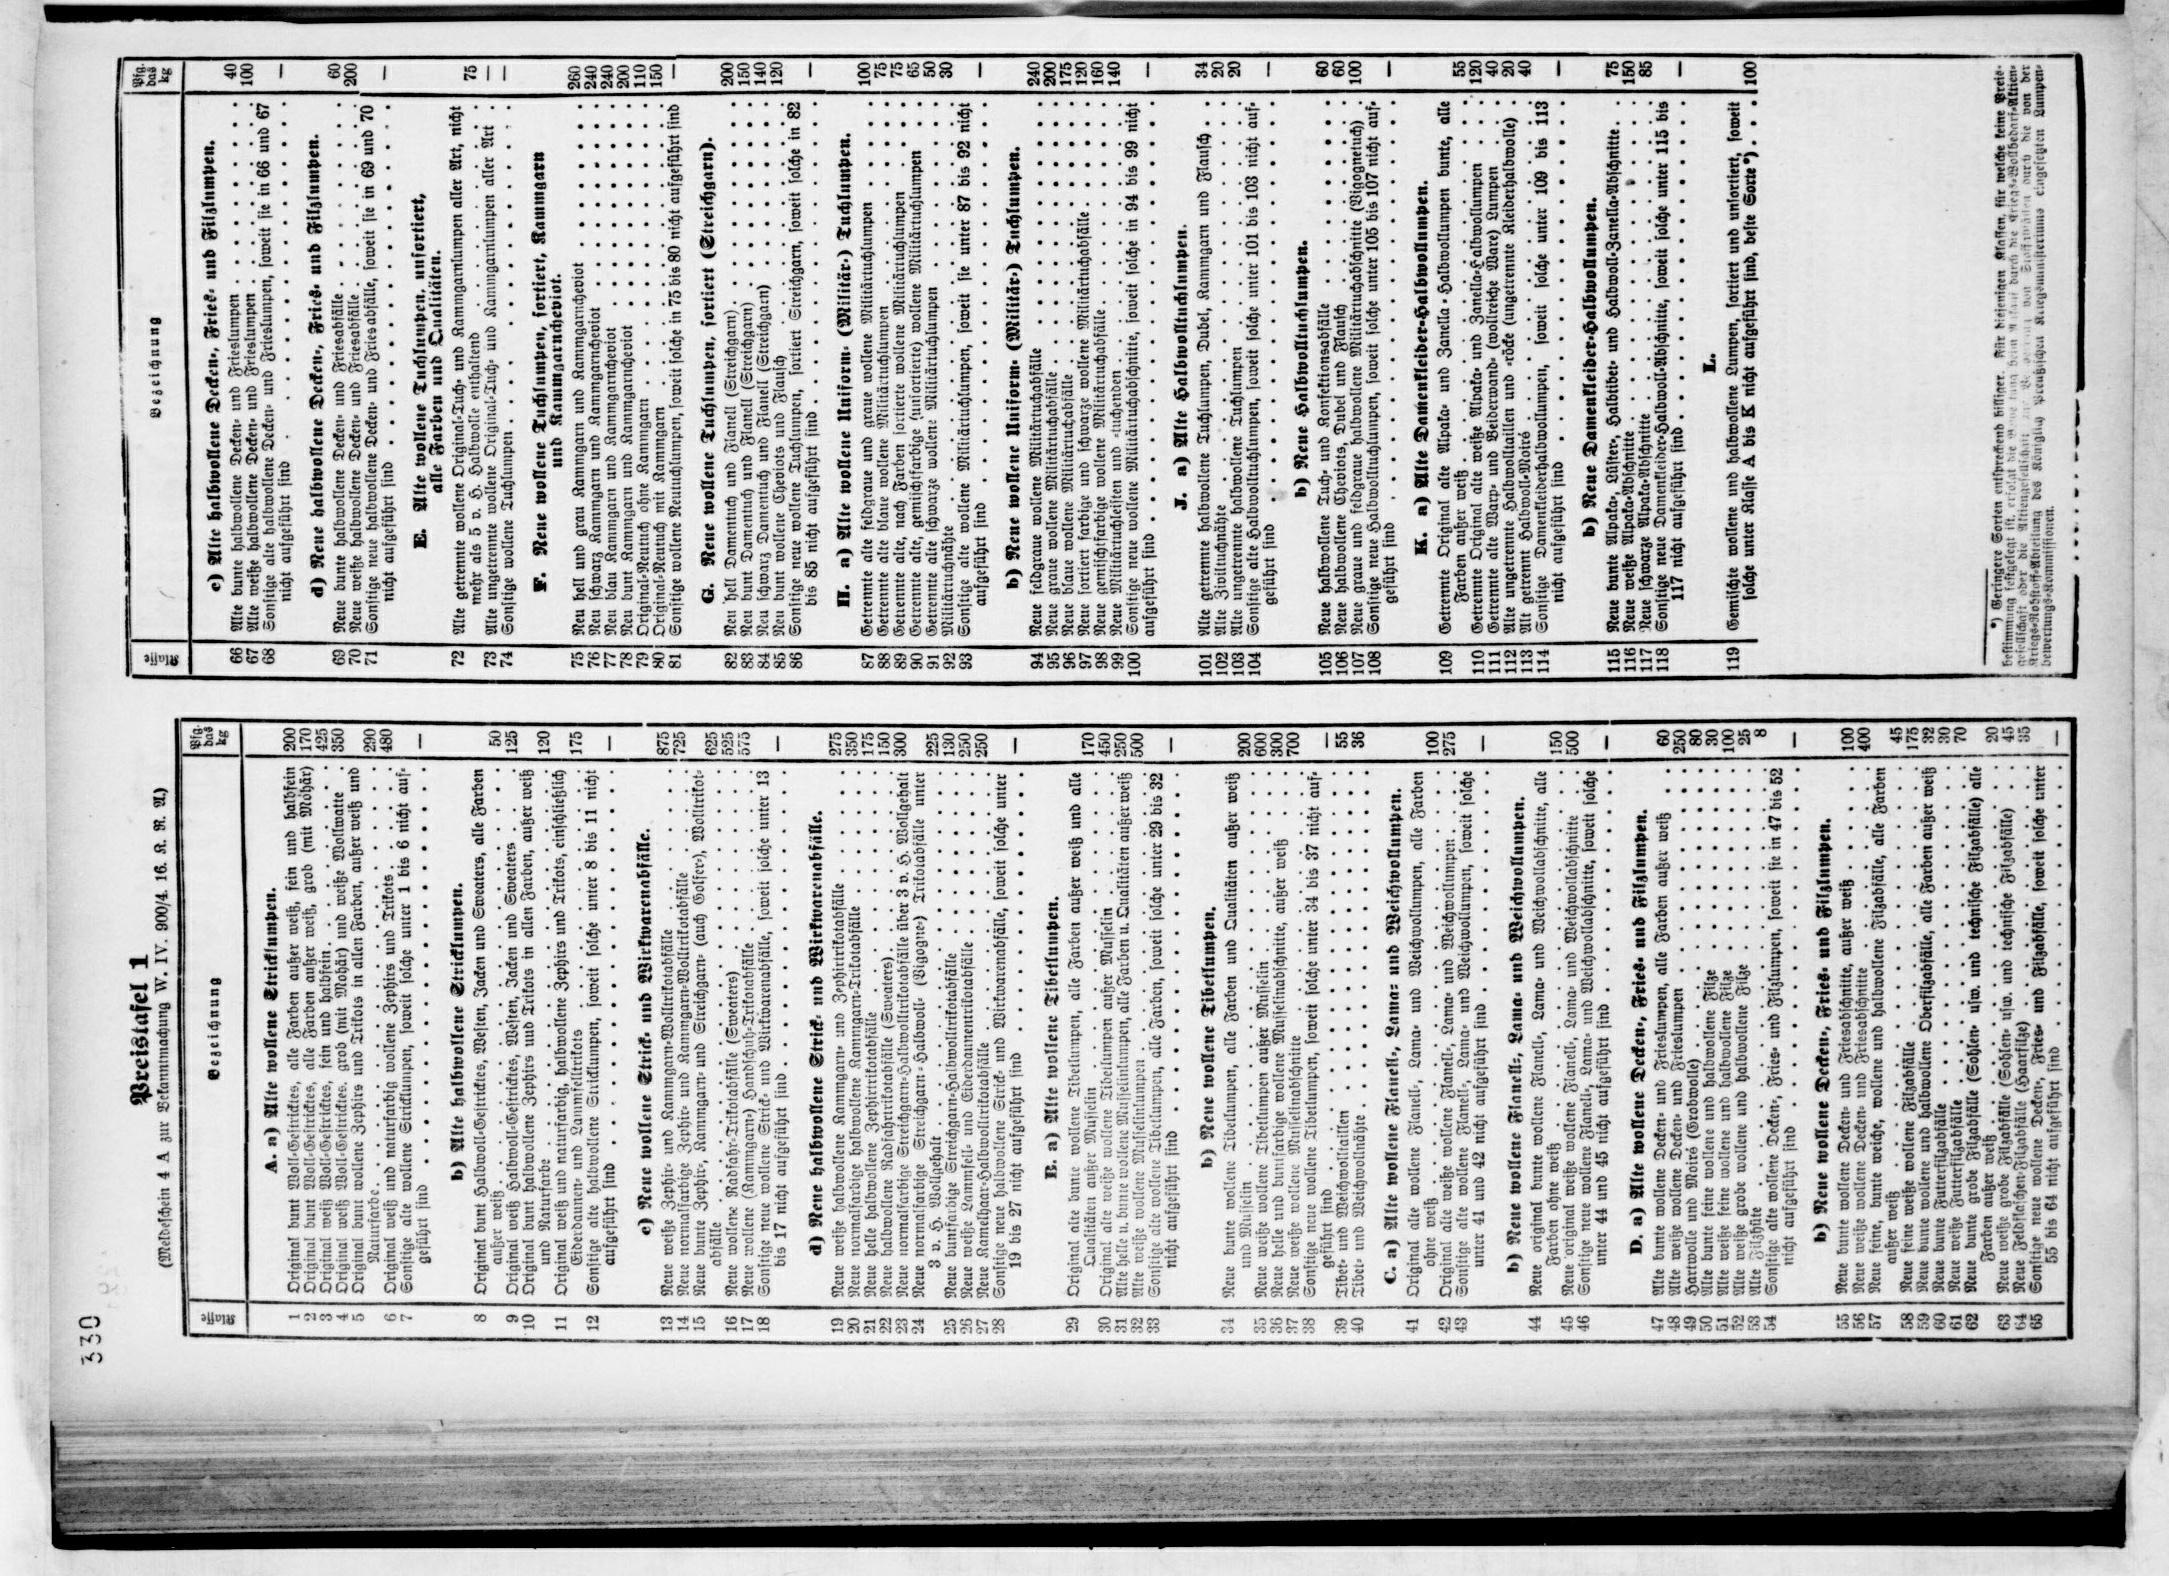 330
Preistafel 1
(Meldeschein 4 A zur Bekanntmachung W. IV. 900/4. 16. K. R. A.)
Klasse Bezeichnung Pfg. das kg
A. a) Alte wollene Stricklumpen.
1 Original bunt Woll-Gestricktes, alle Farben außer weiß, fein und halbfein 200
2 Original bunt Woll-Gestricktes, alle Farben außer weiß, grob (mit Mohär) 170
3 Original weiß Woll-Gestricktes, fein und halbfein . . 425
4 Original weiß Woll-Gestricktes, grob (mit Mohär) und weiße Wollwatte . . 350
5 Original bunt wollene Zephirs und Trikots in allen Farben, außer weiß und
Naturfarbe . . 290
6 Original weiß und naturfarbig wollene Zephirs und Trikots . . 480
7 Sonstige alte wollene Stricklumpen, soweit solche unter 1 bis 6 nicht auf-
geführt sind . . —
b) Alte halbwollene Stricklumpen.
8 Original bunt Halbwoll-Gestricktes, Westen, Jacken und Sweaters, alle Farben
außer weiß . . 50
9 Original weiß Halbwoll-Gestricktes, Westen, Jacken und Sweaters . . 125
10 Original bunt halbwollene Zephirs und Trikots in allen Farben, außer weiß
und Naturfarbe . . 120
11 Original weiß und naturfarbig, halbwollene Zephirs und Trikots, einschließlich
Eiderdaunen- und Lammfelltrikots . . 175
12 Sonstige alte halbwollene Stricklumpen, soweit solche unter 8 bis 11 nicht
aufgeführt sind . . —
c) Neue wollene Strick- und Wirkwarenabfälle.
13 Neue weiße Zephir- und Kammgarn-Wolltrikotabfälle . . 875
14 Neue normalfarbige Zephir- und Kammgarn-Wolltrikotabfälle . . 725
15 Neue bunte Zephir-, Kammgarn- und Streichgarn- (auch Golfer-), Wolltrikot-
abfälle . . 625
16 Neue wollene Radfahr-Trikotabfälle (Sweaters) . . 525
17 Neue wollene (Kammgarn-) Handschuh-Trikotabfälle . . 575
18 Sonstige neue wollene Strick- und Wirkwarenabfälle, soweit solche unter 13
bis 17 nicht aufgeführt sind . . —
d) Neue halbwollene Strick- und Wirkwarenabfälle.
19 Neue weiße halbwollene Kammgarn- und Zephirtrikotabfälle . . 275
20 Neue normalfarbige halbwollene Kammgarn-Trikotabfälle . . 350
21 Neue helle halbwollene Zephirtrikotabfälle . . 175
22 Neue halbwollene Radfahrtrikotabfälle (Sweaters) . . 150
23 Neue normalfarbige Streichgarn-Halbwolltrikotabfälle über 3 v. H. Wollgehalt 300
24 Neue normalfarbige Streichgarn-Halbwoll- (Vigogne-) Trikotabfälle unter
3 v. H. Wollgehalt . . 225
25 Neue buntfarbige Streichgarn-Halbwolltrikotabfälle . . 130
26 Neue weiße Lammfell- und Eiderdaunentrikotabfälle . . 250
27 Neue Kamelhaar-Halbwolltrikotabfälle . . 250
28 Sonstige neue halbwollene Strick- und Wirkwarenabfälle, soweit solche unter
19 bis 27 nicht aufgeführt sind . . —
B. a) Alte wollene Tibetlumpen.
29 Original alte bunte wollene Tibetlumpen, alle Farben außer weiß und alle
Qualitäten außer Musselin . . 170
30 Original alte weiße wollene Tibetlumpen außer Musselin . . 450
31 Alte helle u. bunte wollene Musselinlumpen, alle Farben u. Qualitäten außer weiß 250
32 Alte weiße wollene Musselinlumpen . . 500
33 Sonstige alte wollene Tibetlumpen, alle Farben, soweit solche unter 29 bis 32
nicht aufgeführt sind . . —
b) Neue wollene Tibetlumpen.
34 Neue bunte wollene Tibetlumpen, alle Farben und Qualitäten außer weiß
und Musselin . . 200
35 Neue weiße wollene Tibetlumpen außer Musselin . . 600
36 Neue helle und buntfarbige wollene Musselinabschnitte, außer weiß . . 300
37 Neue weiße wollene Musselinabschnitte . . 700
38 Sonstige neue wollene Tibetlumpen, soweit solche unter 34 bis 37 nicht auf-
geführt sind . . —
39 Tibet- und Weichwolltaillen . . 55
40 Tibet- und Weichwollnähte . . 36
C. a) Alte wollene Flanell-, Lama- und Weichwollumpen.
41 Original alte wollene Flanell-, Lama- und Weichwollumpen, alle Farben
ohne weiß . . 100
42 Original alte weiße wollene Flanell-, Lama- und Weichwollumpen . . 275
43 Sonstige alte wollene Flanell-, Lama- und Weichwollumpen, soweit solche
unter 41 und 42 nicht aufgeführt sind . . —
b) Neue wollene Flanell-, Lama- und Weichwollumpen.
44 Neue original bunte wollene Flanell-, Lama- und Weichwollabschnitte, alle
Farben ohne weiß . . 150
45 Neue original weiße wollene Flanell-, Lama- und Weichwollabschnitte . . 500
46 Sonstige neue wollene Flanell-, Lama- und Weichwollabschnitte, soweit solche
unter 44 und 45 nicht aufgeführt sind . . —
D. a) Alte wollene Decken-, Fries- und Filzlumpen.
47 Alte bunte wollene Decken- und Frieslumpen, alle Farben außer weiß . . 60
48 Alte weiße wollene Decken- und Frieslumpen . . 250
49 Hartwolle und Moiré (Grobwolle) . . 80
50 Alte bunte feine wollene und halbwollene Filze . . 30
51 Alte weiße feine wollene und halbwollene Filze . . 100
52 Alte weiße grobe wollene und halbwollene Filze . . 25
53 Alte Filzhüte . . 8
54 Sonstige alte wollene Decken-, Fries- und Filzlumpen, soweit sie in 47 bis 52
nicht aufgeführt sind . . —
b) Neue wollene Decken-, Fries- und Filzlumpen.
55 Neue bunte wollene Decken- und Friesabschnitte, außer weiß . . 100
56 Neue weiße wollene Decken- und Friesabschnitte . . 400
57 Neue feine, bunte weiche, wollene und halbwollene Filzabfälle, alle Farben
außer weiß . . 45
58 Neue feine weiße wollene Filzabfälle . . 175
59 Neue bunte wollene und halbwollene Oberfilzabfälle, alle Farben außer weiß 32
60 Neue bunte Futterfilzabfälle . . 30
61 Neue weiße Futterfilzabfälle . . 70
62 Neue bunte grobe Filzabfälle (Sohlen- usw. und technische Filzabfälle) alle
Farben außer weiß . . 20
63 Neue weiße grobe Filzabfälle (Sohlen- usw. und technische Filzabfälle) . . 45
64 Neue Feldflaschen-Filzabfälle (Haarfilze) . . 35
65 Sonstige neue wollene Decken-, Fries- und Filzabfälle, soweit solche unter
55 bis 64 nicht aufgeführt sind . . —
Klasse Bezeichnung Pfg. das kg
c) Alte halbwollene Decken-, Fries- und Filzlumpen.
66 Alte bunte halbwollene Decken- und Frieslumpen . . 40
67 Alte weiße halbwollene Decken- und Frieslumpen . . 100
68 Sonstige alte halbwollene Decken- und Frieslumpen, soweit sie in 66 und 67
nicht aufgeführt sind . . —
d) Neue halbwollene Decken-, Fries- und Filzlumpen.
69 Neue bunte halbwollene Decken- und Friesabfälle . . 60
70 Neue weiße halbwollene Decken- und Friesabfälle . . 200
71 Sonstige neue halbwollene Decken- und Friesabfälle, soweit sie in 69 und 70
nicht aufgeführt sind . . —
E. Alte wollene Tuchlumpen, unsortiert,
alle Farben und Qualitäten.
72 Alte getrennte wollene Original-Tuch- und Kammgarnlumpen aller Art, nicht
mehr als 5 v. H. Halbwolle enthaltend . . 75
73 Alte ungetrennte wollene Original-Tuch- und Kammgarnlumpen aller Art . —
74 Sonstige wollene Tuchlumpen . . —
F. Neue wollene Tuchlumpen, sortiert, Kammgarn
und Kammgarncheviot.
75 Neu hell und grau Kammgarn und Kammgarncheviot . . 260
76 Neu schwarz Kammgarn und Kammgarncheviot . . 240
77 Neu blau Kammgarn und Kammgarncheviot . . 240
78 Neu bunt Kammgarn und Kammgarncheviot . . 200
79 Original-Neutuch ohne Kammgarn . . 110
80 Original-Neutuch mit Kammgarn . . 150
81 Sonstige wollene Neutuchlumpen, soweit solche in 75 bis 80 nicht aufgeführt sind —
G. Neue wollene Tuchlumpen, sortiert (Streichgarn).
82 Neu hell Damentuch und Flanell (Streichgarn) . . 200
83 Neu bunt Damentuch und Flanell (Streichgarn) . . 150
84 Neu schwarz Damentuch und Flanell (Streichgarn) . . 140
85 Neu bunt wollene Cheviots und Flausch . . 120
86 Sonstige neue wollene Tuchlumpen, sortiert Streichgarn, soweit solche in 82
bis 85 nicht aufgeführt sind . . —
H. a) Alte wollene Uniform- (Militär-) Tuchlumpen.
87 Getrennte alte feldgraue und graue wollene Militärtuchlumpen . . 100
88 Getrennte alte blaue wollene Militärtuchlumpen . . 75
89 Getrennte alte, nach Farben sortierte wollene Militärtuchlumpen . . 75
90 Getrennte alte, gemischtfarbige (unsortierte) wollene Militärtuchlumpen 65
91 Getrennte alte schwarze wollene Militärtuchlumpen . . 50
92 Militärtuchnähte . . 30
93 Sonstige alte wollene Militärtuchlumpen, soweit sie unter 87 bis 92 nicht
aufgeführt sind . . —
b) Neue wollene Uniform- (Militär-) Tuchlumpen.
94 Neue feldgraue wollene Militärtuchabfälle . . 240
95 Neue graue wollene Militärtuchabfälle . . 200
96 Neue blaue wollene Militärtuchabfälle . . 175
97 Neue sortiert farbige und schwarze wollene Militärtuchabfälle . . 120
98 Neue gemischtfarbige wollene Militärtuchabfälle . . 160
99 Neue Militärtuchleisten und -tuchenden . . 140
100 Sonstige neue wollene Militärtuchabschnitte, soweit solche in 94 bis 99 nicht
aufgeführt sind . . —
J. a) Alte Halbwolltuchlumpen.
101 Alte getrennte halbwollene Tuchlumpen, Dubel, Kammgarn und Flausch . . 34
102 Alte Ziviltuchnähte . . 20
103 Alte ungetrennte halbwollene Tuchlumpen . . 20
104 Sonstige alte Halbwolltuchlumpen, soweit solche unter 101 bis 103 nicht auf-
geführt sind . . —
b) Neue Halbwolltuchlumpen.
105 Neue halbwollene Tuch- und Konfektionsabfälle . . 60
106 Neue halbwollene Cheviots, Dubel und Flausch . . 60
107 Neue graue und feldgraue halbwollene Militärtuchabschnitte (Vigognetuch) 100
108 Sonstige neue Halbwolltuchlumpen, soweit solche unter 105 bis 107 nicht auf-
geführt sind . . —
K. a) Alte Damenkleider-Halbwollumpen.
109 Getrennte Original alte Alpaka- und Zanella-Halbwollumpen bunte, alle
Farben außer weiß . . 55
110 Getrennte Original alte weiße Alpaka- und Zanella-Halbwollumpen . . 120
111 Getrennte alte Warp- und Beiderwand- (wollreiche Ware) Lumpen . . 40
112 Alte ungetrennte Halbwolltaillen und -röcke (ungetrennte Kleiderhalbwolle) . 20
113 Alt getrennt Halbwoll-Moiré . . 40
114 Sonstige Damenkleiderhalbwollumpen, soweit solche unter 109 bis 113
nicht aufgeführt sind . . —
b) Neue Damenkleider-Halbwollumpen.
115 Neue bunte Alpaka-, Lüster-, Halbtibet- und Halbwoll-Zanella-Abschnitte . . 75
116 Neue weiße Alpaka-Abschnitte . . 150
117 Neue schwarze Alpaka-Abschnitte . . 85
118 Sonstige neue Damenkleider-Halbwoll-Abschnitte, soweit solche unter 115 bis
117 nicht aufgeführt sind . . —
L.
119 Gemischte wollene und halbwollene Lumpen, sortiert und unsortiert, soweit
solche unter Klasse A bis K nicht aufgeführt sind, beste Sorte*) . . 100
*) Geringere Sorten entsprechend billiger. Für diejenigen Klassen, für welche keine Preis-
bestimmung festgesetzt ist, erfolgt die beim durch die Kriegs-Wollbedarf-Aktien-
gesellschaft oder die Aktiengesellschaft zur von durch die von der
Kriegs-Rohstoff-Abteilung des Königlich Preußischen Kriegsministeriums eingesetzten Lumpen-
bewertungs-Kommissionen.